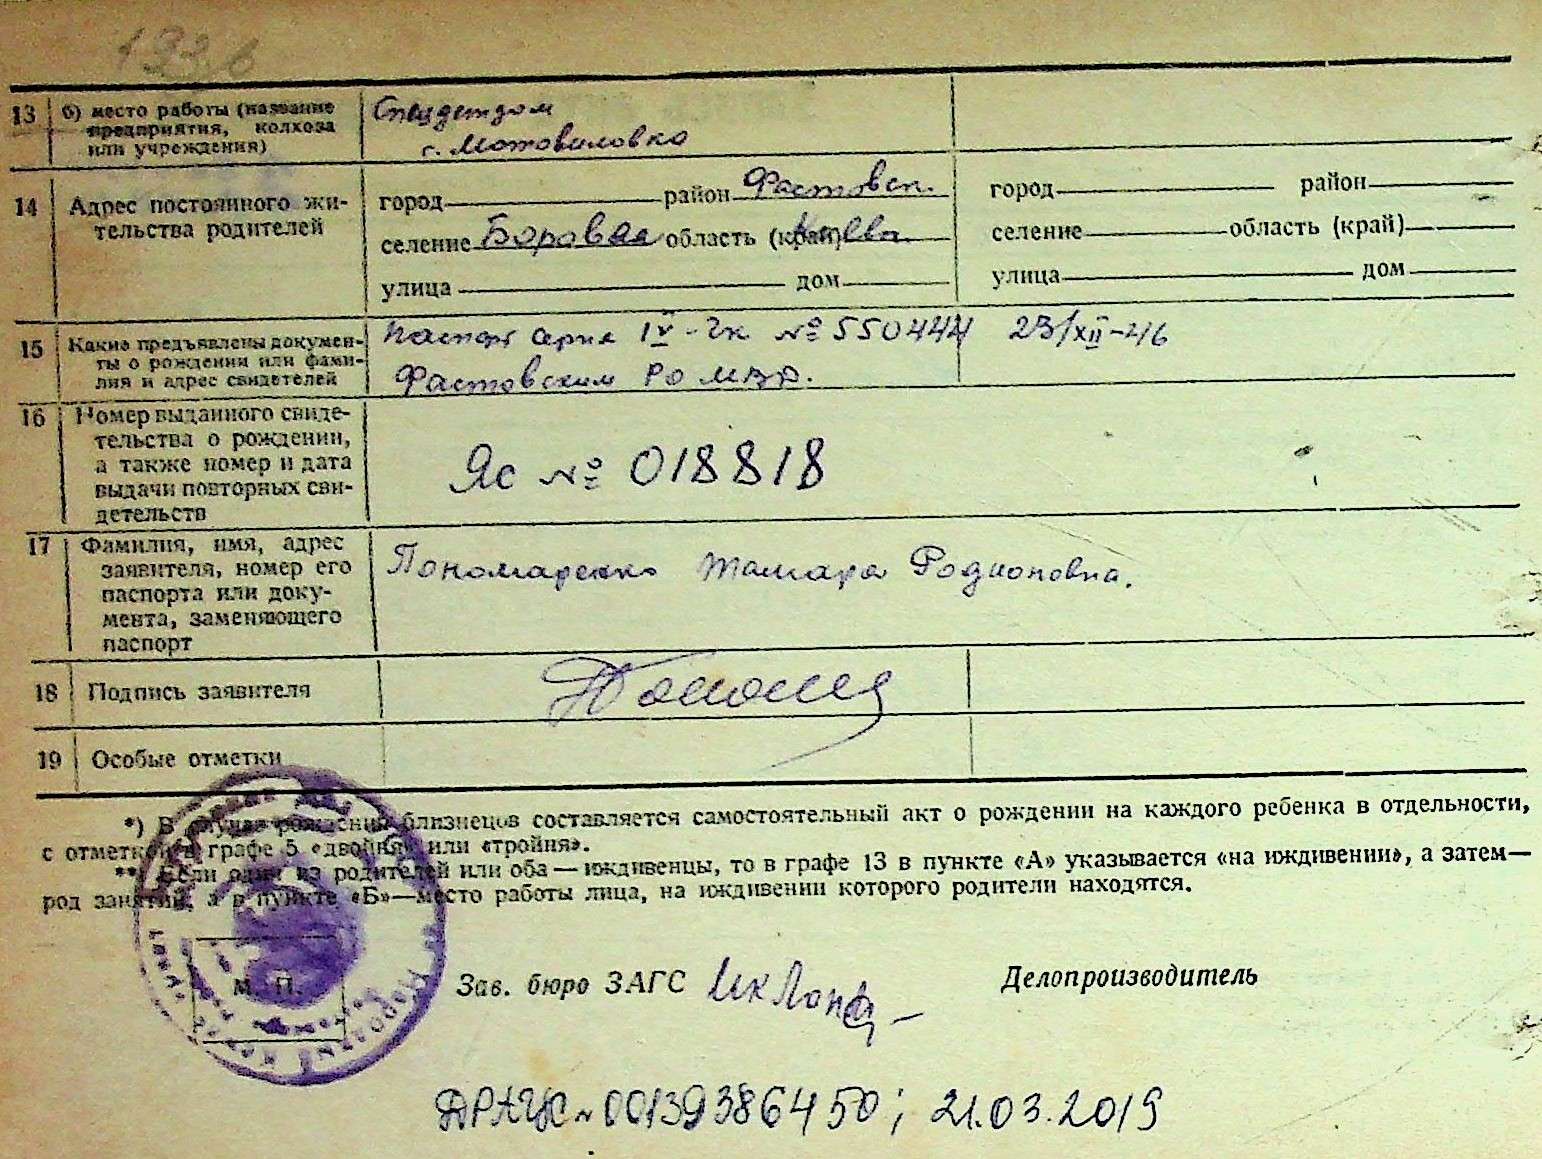 193
13 б) место работы (название
предприятия, колхоза
или учреждения)
Спецдетдом
г. Мотовиловка
14 Адрес постоянного жи-
тельства родителей
город район Фастовск.
селение Боровая область (край)
улица дом
город район
селение область (край)
улица дом
15 Какие предъявлены докумен-
ты о рождении или фами-
лия и адрес свидетелей
Паспорт серия IV - № 550444 23/XII-46
Фастовским РО МВД.
16 Номер выданного свиде-
тельства о рождении,
а также номер и дата
выдачи повторных сви-
детельств
Яс № 018818
17 Фамилия, имя, адрес
заявителя, номер его
паспорта или доку-
мента, заменяющего
паспорт
Пономаренко Тамара Родионовна.
18 Подпись заявителя
19 Особые отметки
*) В случае рождения близнецов составляется самостоятельный акт о рождении на каждого ребенка в отдельности,
с отметкой в графе 5 «двойня» или «тройня».
**) Если один из родителей или оба — иждивенцы, то в графе 13 в пункте «А» указывается «на иждивении», а затем—
род занятий, а в пункте «Б»—место работы лица, на иждивении которого родители находятся.
М. П.
Зав. бюро ЗАГС
Делопроизводитель
ДРАЦС № 00139386450; 21.03.2019